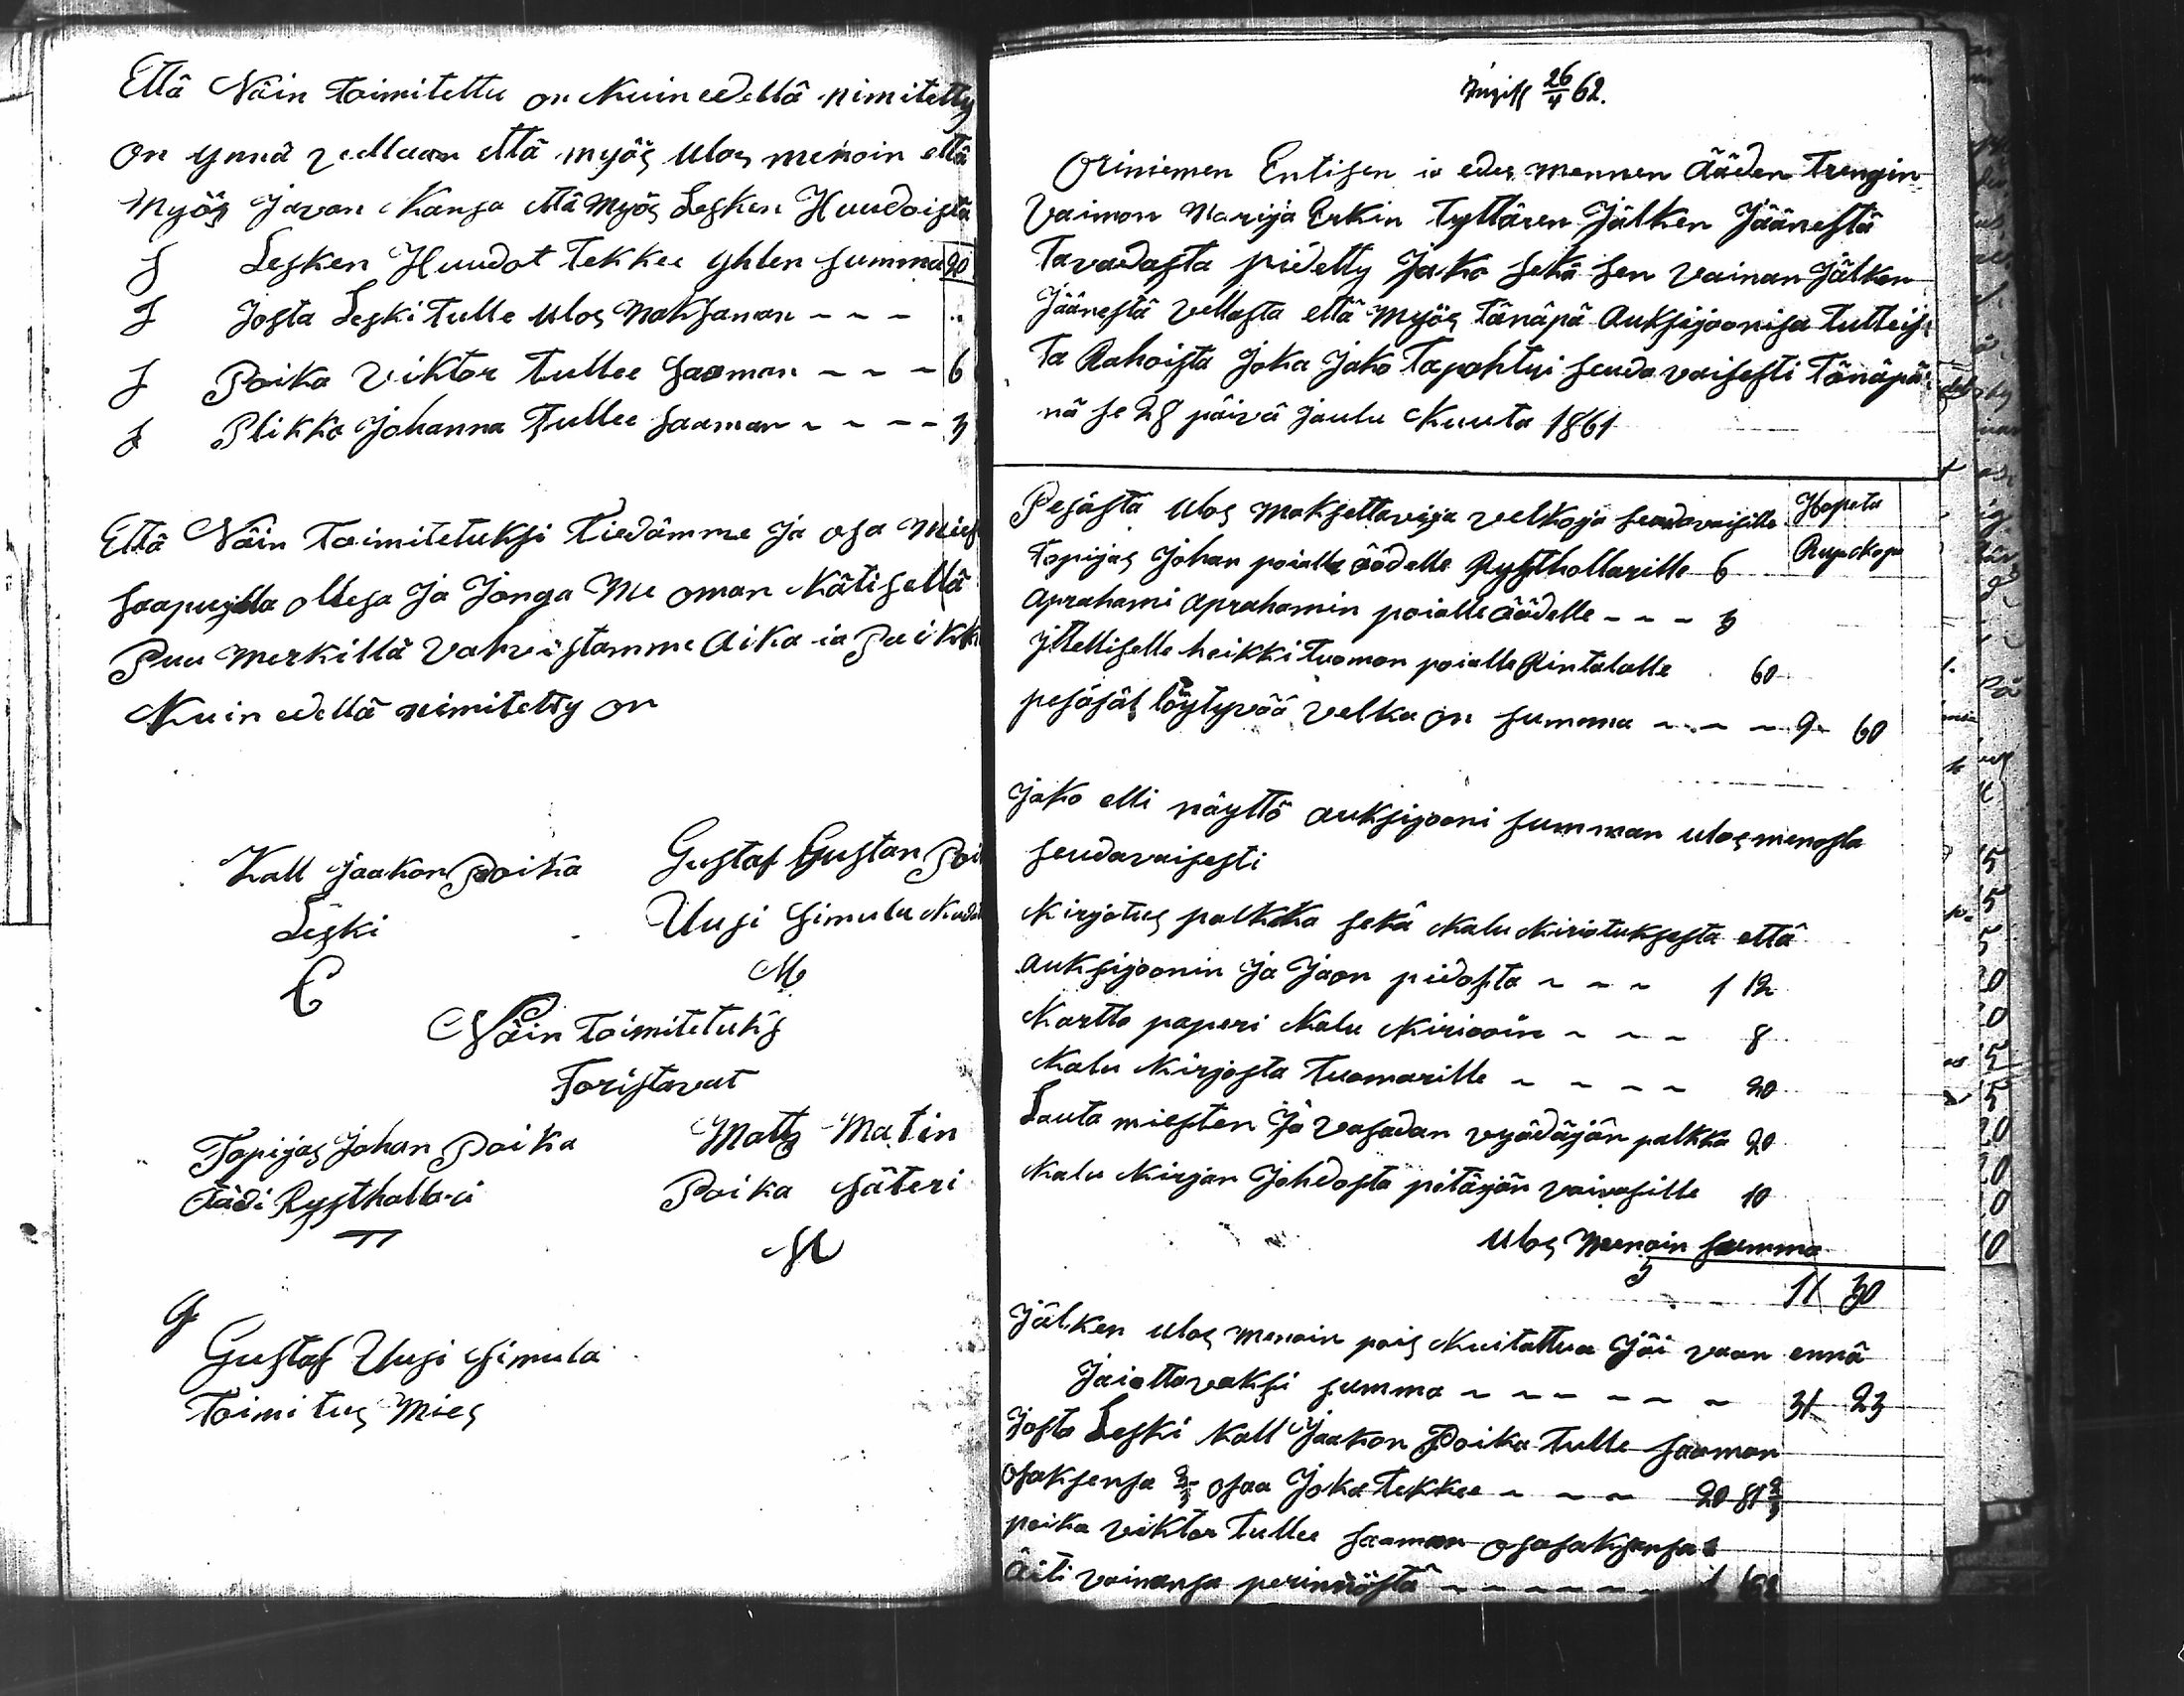 Että Näin toimitettu on Kuin edellä nimitetty
On ynnä vellaan että myös Ulos menoin että
Myös Javan Kansa että Myös Lesken Huudoista
S Lesken Huudot tekkee yhten summa 20
S Josta Leski tulle Ulos Maksaman - - -
S Poika Viktor tullee saaman - - - 6
S Plikka Johanna tullee saaman - - - - 3
Että Näin Toimitetuksi tiedämme Ja osa
saapuvilla ollesa Ja Jonga Me oman Kätisellä
Puu Merkillä vahvistamme Aika ia Paikka
Kuin edellä nimitetty on
Kall Jaakon Poika Gustaf Gustan Poi
Leski Uusi Simula
E M
Näin toimitetuks
Toristavat
Topijas Johan Poika Matts Matin
Äädi Rysthollari Poika Säteri
TT M
G
Gustaf Uusi Simula
Toimitus Mies
Ingift 26/4 62.
Oriniemen Entisen ia edes mennen Ääden trengin
Vaimon Marija Erkin tyttären Jälken Jäänestä
Tavadasta pidetty Jako sekä sen vainan Jälken
Jäänestä vellasta että myös tänäpä Auksijoonisa tulleis
ta Rahoista Joka Jako Tapahtui seudavaisesti Tänäpä
nä se 28 päivä Jaulu Kuuta 1861
Pesästä Ulos Maksettavija velkoja seudavaisille Hopeta
Topijas Johan poialle äädelle Rysthollarille 6 Rup Kop
Aprahami Aprahamin poialle äädelle - - - 3
ittelliselle heikki tuoman poialle Rintalalle 60
pesäsäs löytyvää velka on summa - - - 9 60
Jako elli näyttö auksijooni summan ulos menosta
seudavaisesti
Kirjotus palkka sekä Kalu Kiriotuksesta että
auksijoonin Ja Jaon pidosta - - - 1 12
Kartta paperi Kalu Kiriaain - - - 8
Kalu Kirjosta tuomarille - - - - 20
Lauta miesten Ja vasadan vyädäjän palkka 20
Kalu Kirjan Johdosta pitäjän vaivasille 10
Ulos Menoin summa
11 30
Jälken ulos menoin pois Kuitattua Jäi vaan ennä
Jaiottavaksi summa - - - - - - 31 23
Josta Leski Kall Jaakon Poika tulle saaman
Osaksensa 2/3 osaa Joka tekkee - - - 20 81 2/3
poika viktor tullee saaman osasaksensa
Äiti vainansa perinnöstä - - - - - -